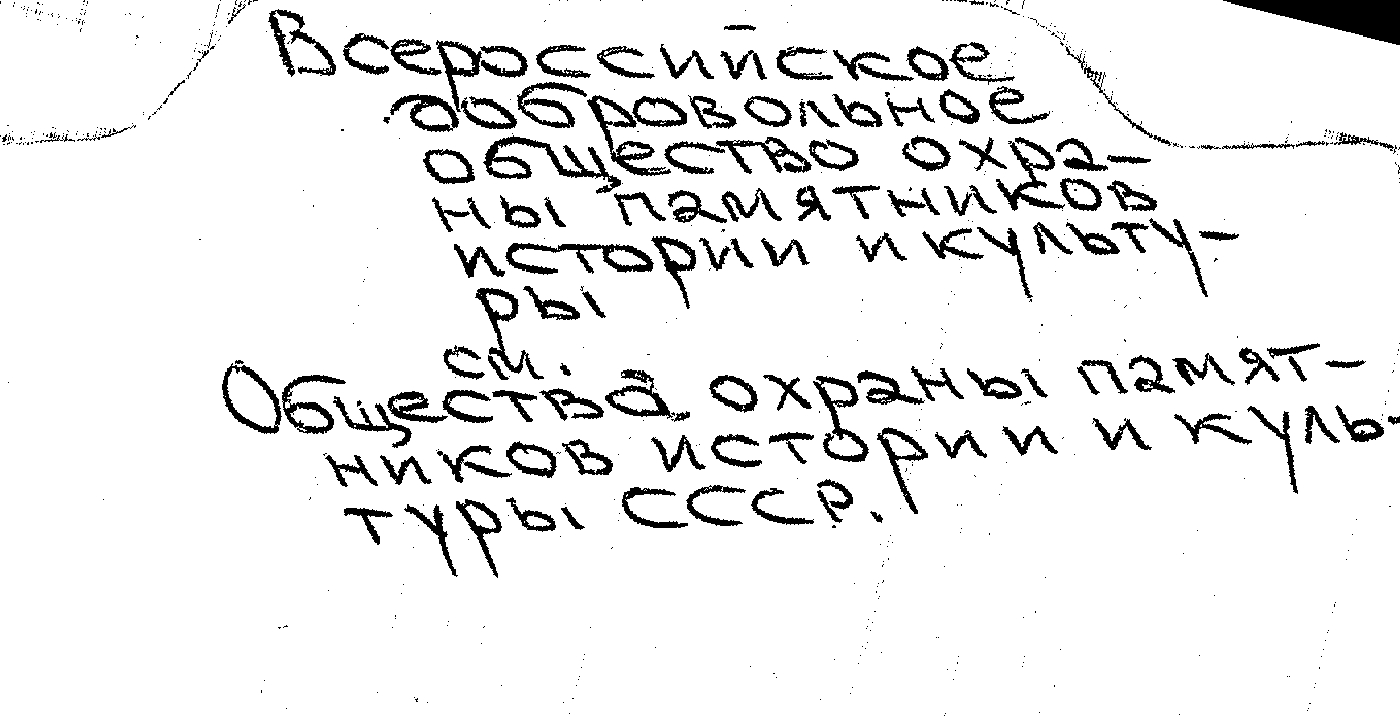 Всероссийское
добровольное
общество охра-
ны памятников
истории и культу-
ры
см.
Общества охраны памят-
ников истории и куль-
туры СССР.